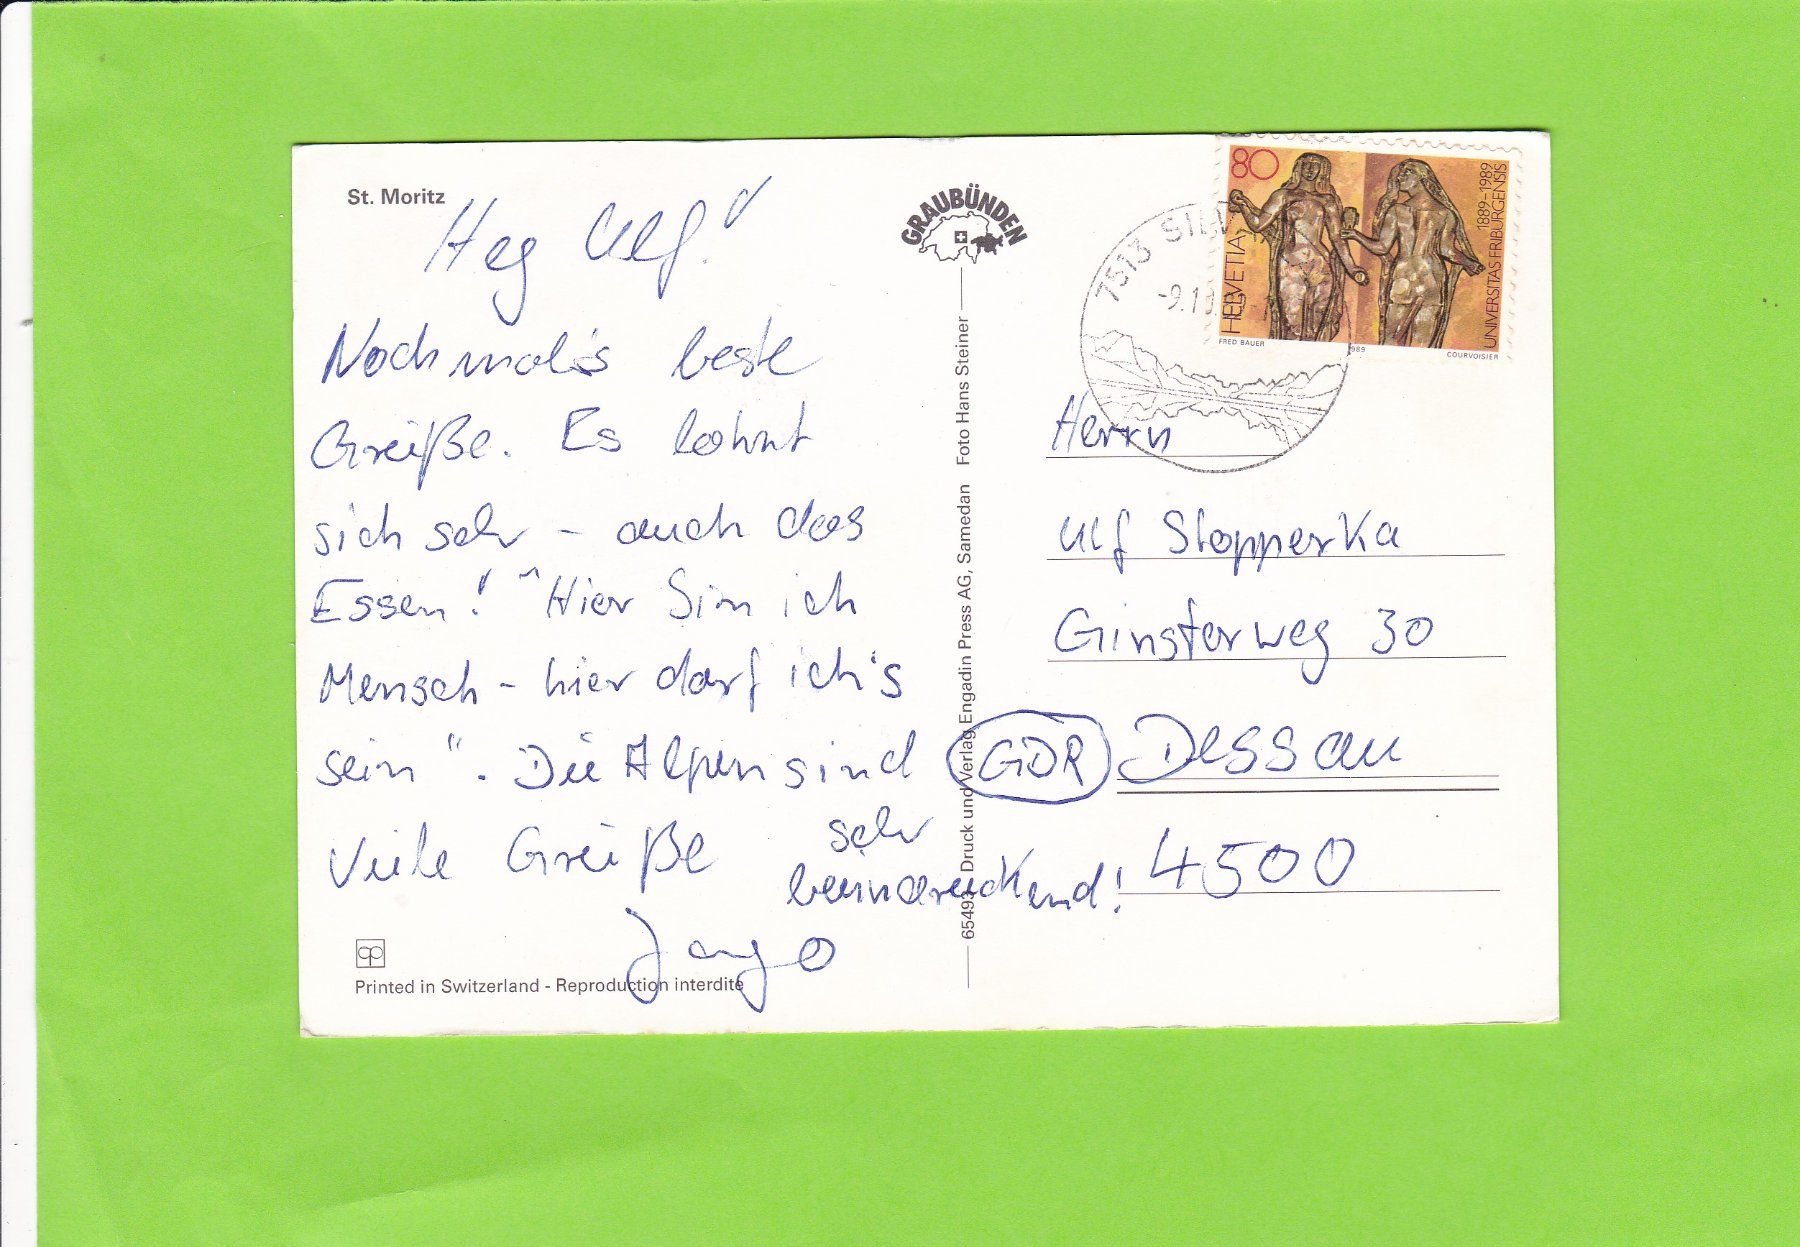 St. Moritz
Hey Ulf!
Nochmals beste
Grüße. Es lohnt
sich sehr - auch das
Essen! "Hier bin ich
Mensch - hier darf ich's
sein". Die Alpen sind
sehr
beeindruckend!
Viele Grüße
Printed in Switzerland - Reproduction interdite
GRAUBÜNDEN
65493 Druck und Verlag Engadin Press AG, Samedan Foto Hans Steiner
7513
80
HELVETIA
1889-1989
UNIVERSITAS FRIBURGENSIS
FRED BAUER
COURVOISIER
Herrn
Ulf Stopperka
Ginsterweg 30
GDR Dessau
4500